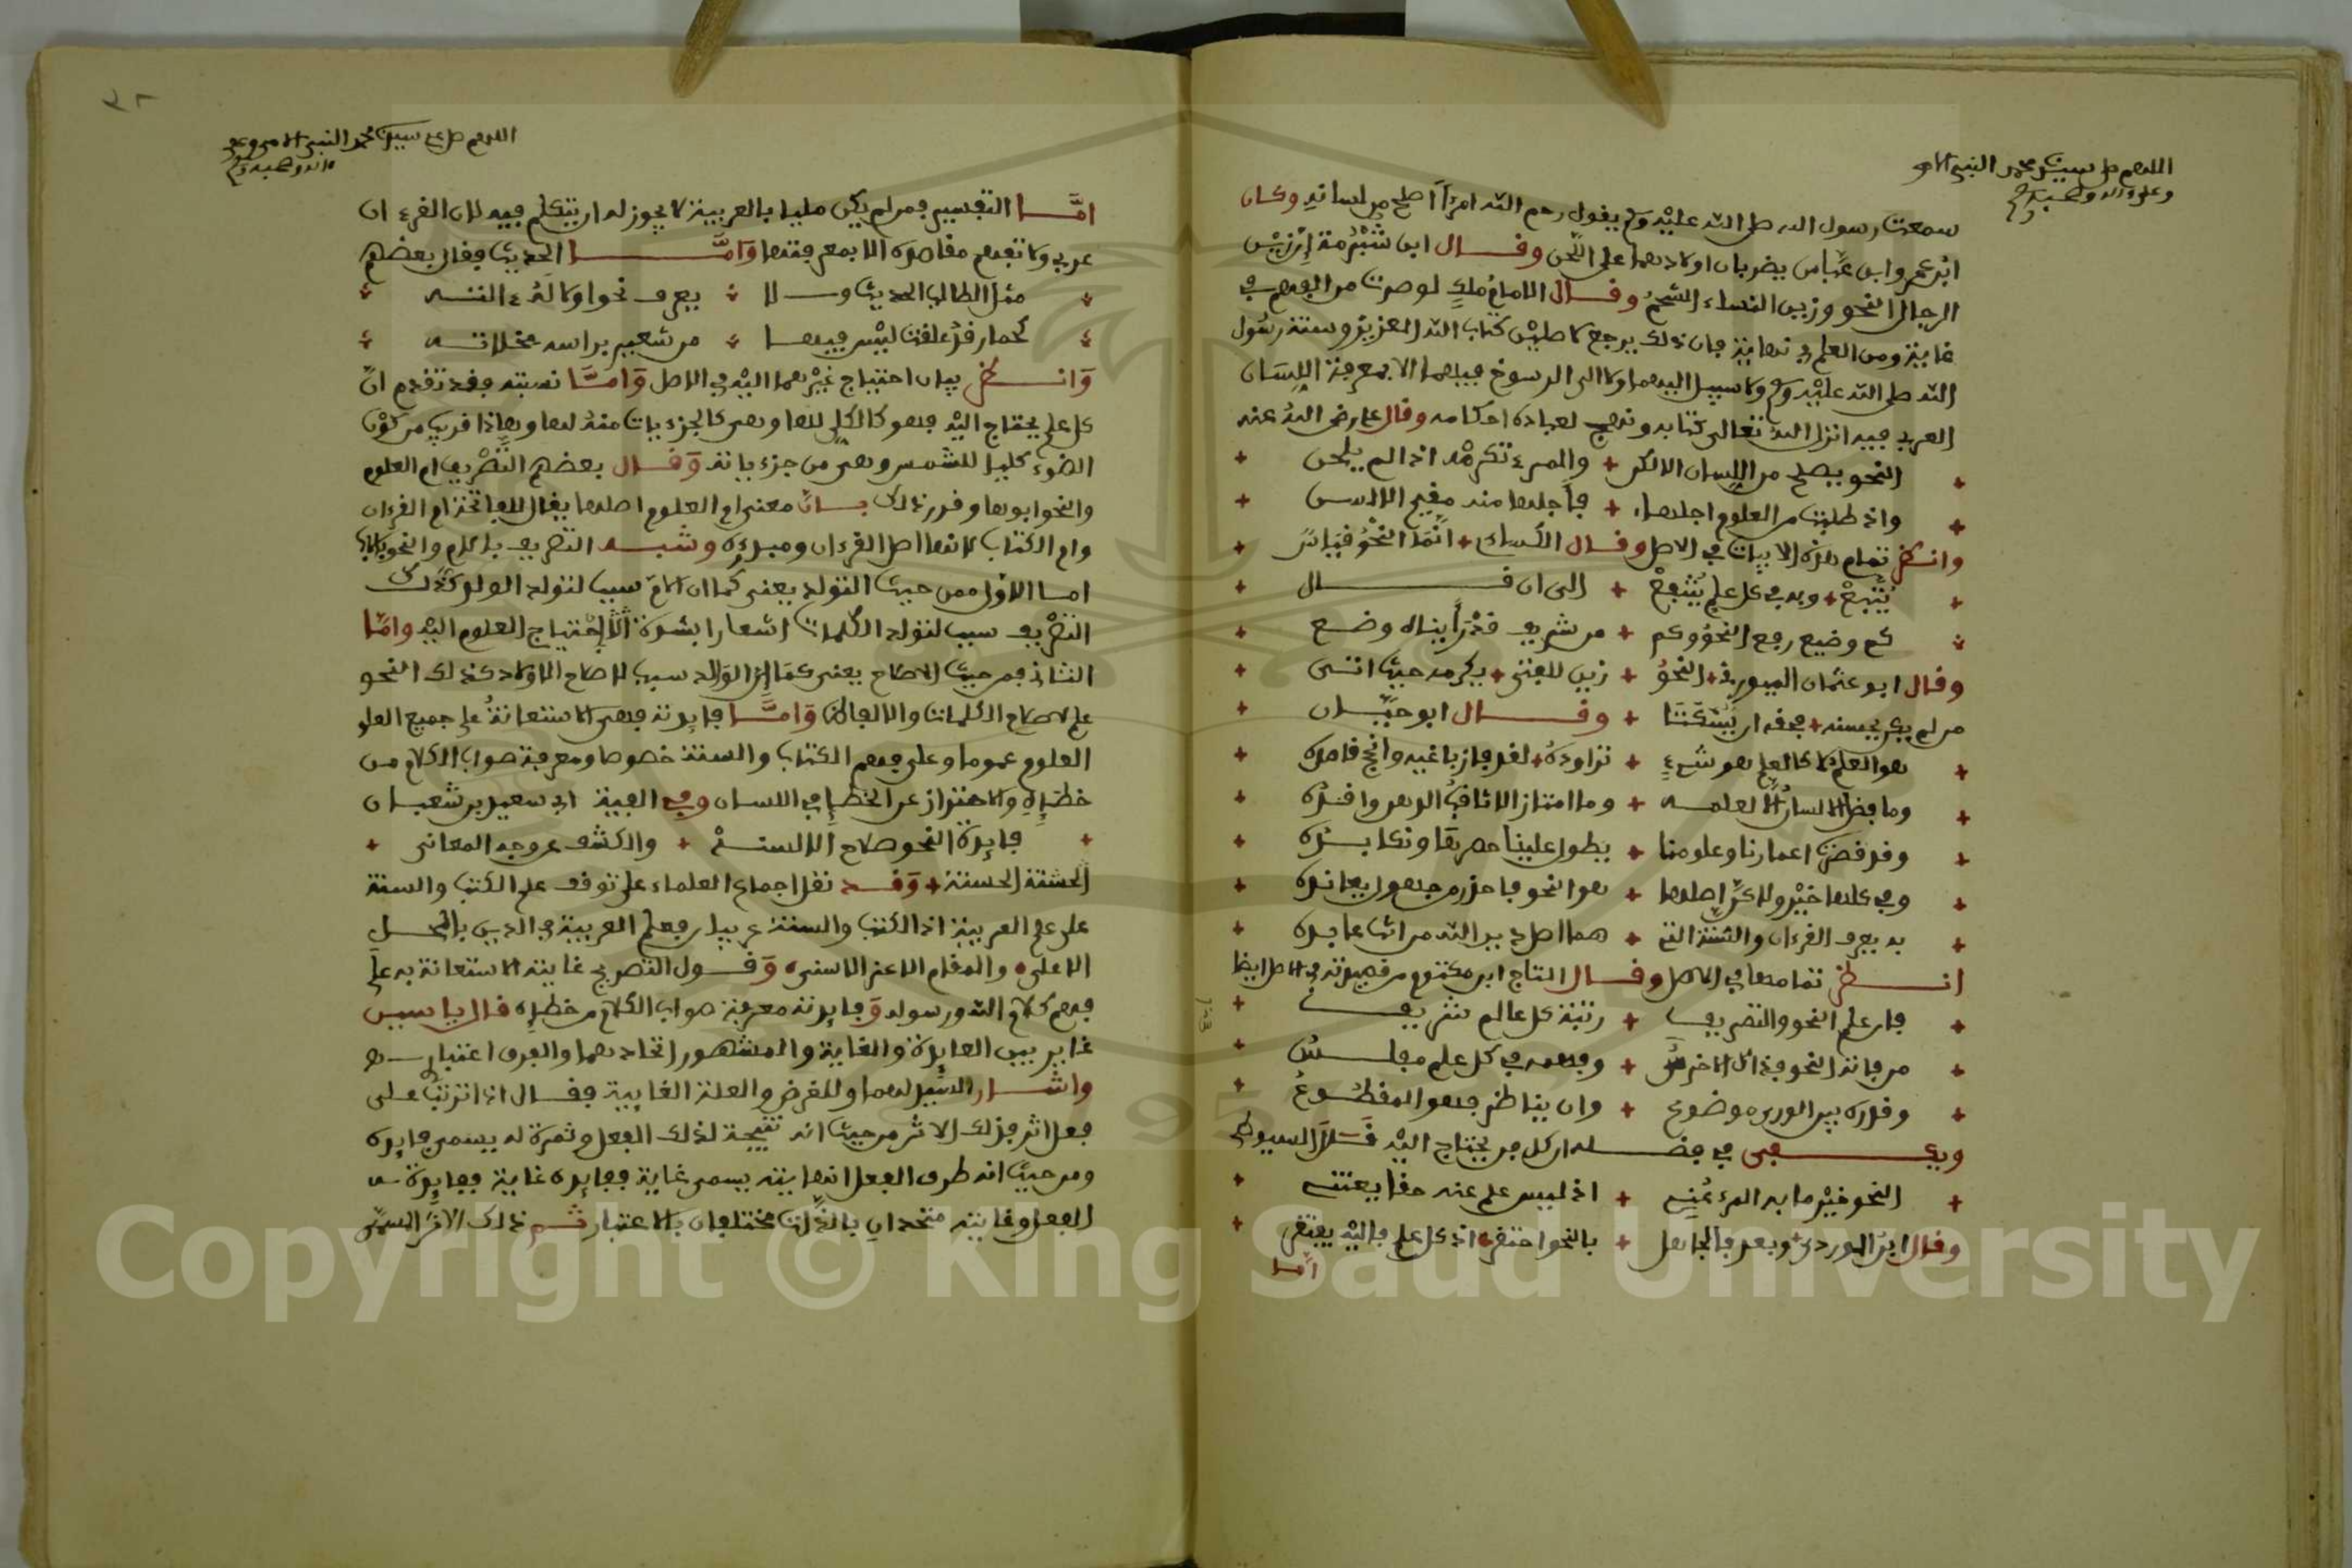 اللهم صل سيدنا محمد النبي الامي
وعلى ءاله وصحبه وسلم
سمعت رسول الله صلى الله عليه وسلم يقول رحم الله امرءا اصلح من لسانه وكان
ابن عمر وابن عباس يضربان اولادهما على اللحن وقال ابن شبرمة ازين
الرجال النحو وزين النساء الشحم وقال الامام ملك لو صرت من الفهم في
غاية ومن العلم في نهاية فان ذلك يرجع لاصلين كتاب الله العزيز وسنة رسول
الله صلى الله عليه وسلم ولا سبيل اليهما ولا الى الرسوخ فيهما الا بمعرفة اللسان
العربي فيه انزل الله تعالى كتابه ونهج لعباده احكامه وقال على رضي الله عنه
النحو يصلح من اللسان الالكن + والمرء تكرمه اذا لم يلحن
واذا طلبت من العلوم اجلها + فاجلها منه مقيم الالسن
وانظر تمام هذه الابيات في الاصل وقال الكسائي + انما النحو قياس
يتبع + وبه في كل علم ينتفع + الى ان قال
كم وضيع رفع النحو وكم + من شريف قد رأيناه وضع
وقال ابو عثمان + النحو + زين للفتى + يكرمه حيث اتى
من لم يكن يحسنه + فحقه ان يسكتا + وقال ابو حيان
هو العلم لا كالعلم هو شيء + تراوده + لقد فاز باغيه وانجح قاصده
وما فضل الانسان الا لعلمه + وما امتاز الا ثاقب الدهر واقده
وقد قصرت اعمارنا وعلومنا + يطول علينا حصرها ونكابده
وفي كلها خير ولاكن اصلها + هو النحو فاحذر من جهول يعانده
به يعرف القرءان والسنة التي + هما اصل دين الله من انت عابده
انظر تمامها في الاصل وقال التاج ابن مكتوم من قصيدته في الاصل ايضا
فان علم النحو والتصريف + رتبة كل عالم شريف
من فاته النحو فذاك الاخرس + وفهمه في كل علم مفلس
وقدره بين الورى موضوع + وان يناظر فهو المقطوع
ويكفى في فضله ان كل فن يحتاج اليه قال السيوطي
النحو خير ما به المرء عني + اذ ليس علم عنه حقا يغتني
وقال ابن الوردي + وبعد فالجاهل + بالنحو احتقر + اذ كل علم فاليه يفتقر
اما
٣٢
اللهم صل على سيدنا محمد النبي الامي وعلى
ءاله وصحبه وسلم
اما التفسير فمن لم يكن مليا بالعربية لا يجوز له ان يتكلم فيه لان القرءان
عربي ولا تفهم مقاصده الا بمعرفتها واما الحديث فقال بعضهم
مثل الطالب الحديث ولا + يعرف نحوا ولا لدءالته
كحمار قد علقت ليس فيها + من شعير براسه مخلاته
وانظر بيان احتياج غيرهما اليه في الاصل واما نسبته فقد تقدم ان
كل علم يحتاج اليه فهو كالكلي لها وهي كالجزءيات منه لها وهاذا قريب من كون
الضوء كليا للشمس وهي من جزءياته وقال بعضهم التصريف ام العلوم
والنحو ابوها وقرر ذلك بان معنى ام العلوم اصلها يقال للفاتحة ام القرءان
وام الكتاب لانها اصل القرءان ومبدؤه وشبه التصريف بالام والنحو بالاب
اما الاول فمن حيث التولد يعني كما ان الام سبب لتولد الولد كذلك
التصريف سبب لتولد الكلمات اشعارا بشدة احتياج العلوم اليه واما
الثاني فمن حيث الاصلاح يعني كما ان الوالد سبب لاصلاح الاولاد كذلك النحو
علم لاصلاح الكلمات والالفاظ واما فايدته فهي الاستعانة على جميع العلو
العلوم عموما وعلى فهم الكتاب والسنة خصوصا ومعرفة صواب الكلام من
خطئه والاحتراز عن الخطإ في اللسان وفي الفية ابي سعيد بن شعبان
+ فايدة النحو صلاح الالسنة + والكشف عن وجه المعاني +
الحسنة الحسنة + وقد نقل اجماع العلماء على توقف علم الكتب والسنة
على علم العربية اذ الكتب والسنة عربيان فعلم العربية في الدين بالمحل
الاعلى والمقام الاعز الاسنى وقول التصريح غايته الاستعانة به على
فهم كلام الله ورسوله وفايدته معرفة صواب الكلام من خطئه قال ياسين
غاير بين الفايدة والغاية والمشهور اتحادهما والفرق اعتباري
واشار السيد لهما وللغرض والعلة الغاية فقال اذا ترتب على
فعل اثر فذلك الاثر من حيث انه نتيجة لذلك الفعل وثمرة له يسمى فايدة
ومن حيث انه طرف الفعل ونهايته يسمى غاية ففايدة غاية ففايدة
الفعل وغايته متحدان بالذات مختلفان بالاعتبار ثم ذلك الاثر المسمى
Copyright © King Saud University